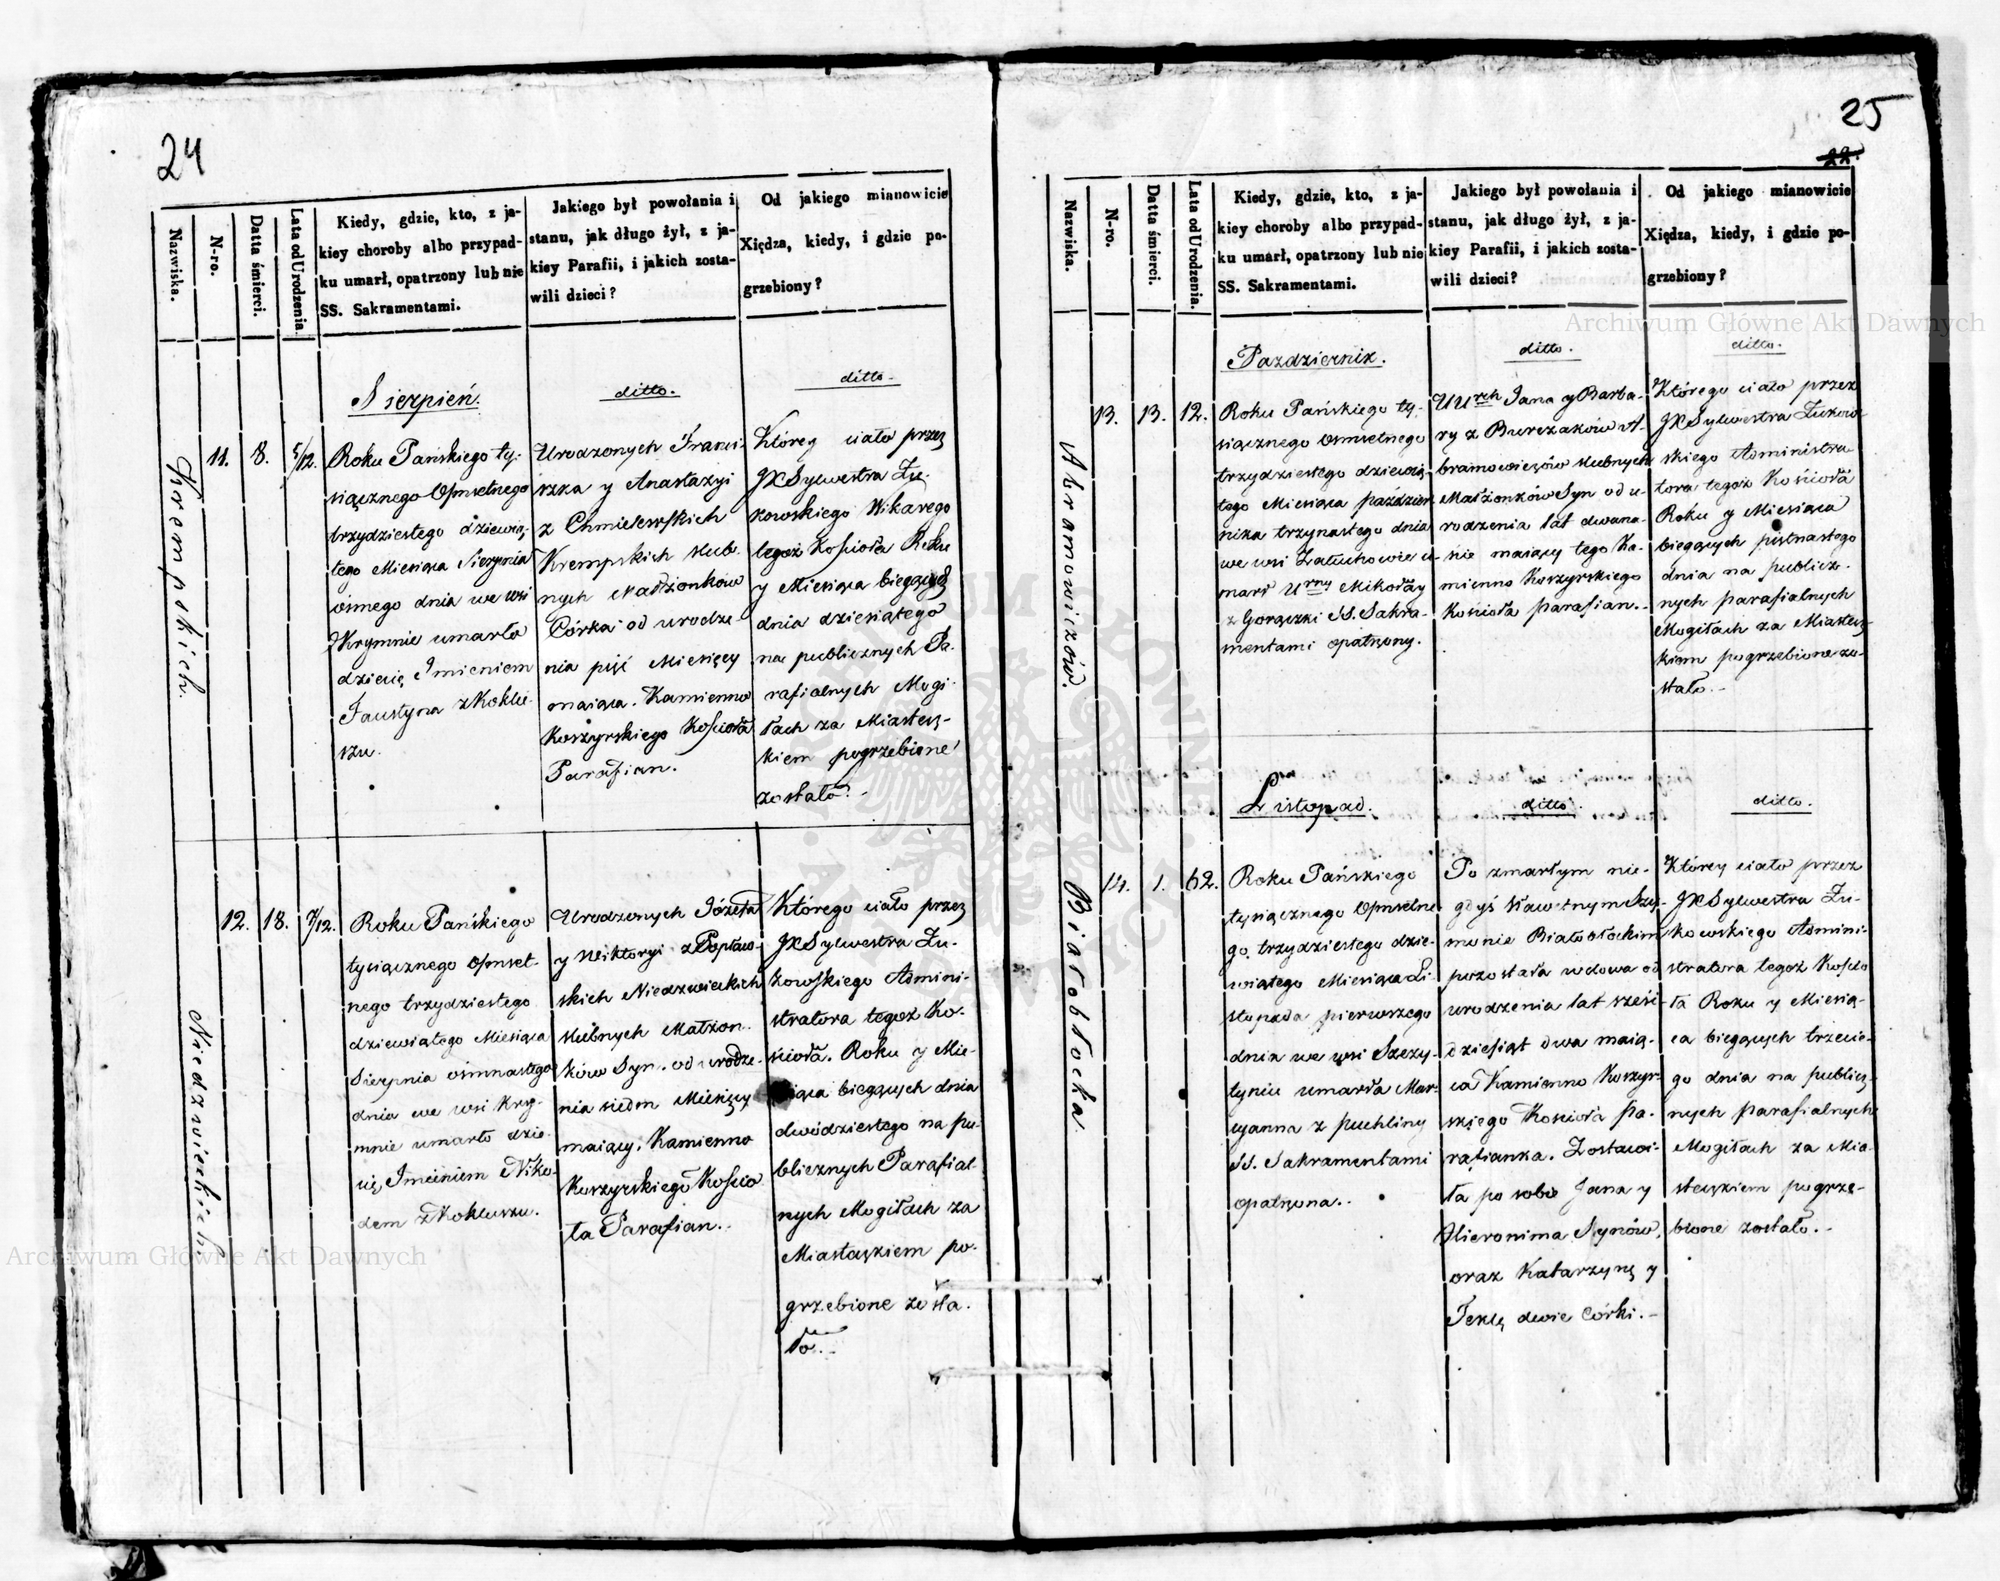 24
Nazwiska.
N-ro.
Datta śmierci.
Lata od Urodzenia.
Kiedy, gdzie, kto, z ja-
kiey choroby albo przypad-
ku umarł, opatrzony lub nie
SS. Sakramentami.
Jakiego był powołania i
stanu, jak długo żył, z ja-
kiey Parafii, i jakich zosta-
wili dzieci?
Od jakiego mianowicie
Xiędza, kiedy, i gdzie po-
grzebiony?
Sierpień.
ditto.
ditto.
Krempskich.
11.
8.
5/12.
Roku Pańskiego ty-
siącznego Ośmsetnego
trzydziestego dziewią-
tego Miesiąca Sierpnia
ósmego dnia we wsi
Krymnie umarło
dziecię Imieniem
Faustyna z Koklu-
szu.
Urodzonych Franci-
szka y Anastazyi
z Chmielewskich
Krempskich slub-
nych Małżonków
Córka od urodze-
nia pięć Miesięcy
maiąca. Kamienno
Koszyrskiego Kościoła
Parafian.
Którey ciało przez
JX Sylwestra Żu-
kowskiego Wikarego
tegoż Kościoła Roku
y Miesiąca bieżących
dnia dziesiątego
na publicznych Pa-
rafialnych Mogi-
łach za Miastecz-
kiem pogrzebione
zostało. -
Niedzwieckich.
12.
18.
7/12.
Roku Pańskiego
tysiącznego Ośmset-
nego trzydziestego
dziewiątego Miesiąca
Sierpnia ośmnastego
dnia we wsi Kry-
mnie umarło dzie-
cię Imieniem Niko-
dem z Kokluszu.
Urodzonych Józefa
y Wiktoryi z Popław-
skich Niedzwieckich
slubnych Małżon-
ków Syn. od urodze-
nia siedm Miesięcy
maiący. Kamienno
Koszyrskiego Kościo
ła Parafian.
Którego ciało przez
JX Sylwestra Żu-
kowskiego Admini-
stratora tegoż Ko-
ścioła. Roku y Mie-
siąca bieżących dnia
dwódziestego na pu-
blicznych Parafial-
nych Mogiłach za
Miasteczkiem po-
grzebione zosta-
ło. -
25
22.
Nazwiska.
N-ro.
Datta śmierci.
Lata od Urodzenia.
Kiedy, gdzie, kto, z ja-
kiey choroby albo przypad-
ku umarł, opatrzony lub nie
SS. Sakramentami.
Jakiego był powołania i
stanu, jak długo żył, z ja-
kiey Parafii, i jakich zosta-
wili dzieci?
Od jakiego mianowicie
Xiędza, kiedy, i gdzie po-
grzebiony?
Październik.
ditto.
ditto.
Abramowiczów.
13.
13.
12.
Roku Pańskiego ty-
siącznego Ośmsetnego
trzydziestego dziewią-
tego Miesiąca paździer-
nika trzynastego dnia
we wsi Zaluchowie u-
marł Urny Mikołay
z Gorączki SS. Sakra-
mentami opatrzony.
UUrch Jana y Barba-
ry z Burczaków A-
bramowiczów slubnych
Małżonków Syn od u-
rodzenia lat dwana-
ście maiący tego Ka-
mienno Koszyrskiego
Kościoła parafian. -
Którego ciało przez
JX Sylwestra Żukow-
skiego Administra-
tora tegoż Kościoła
Roku y Miesiąca
bieżących piętnastego
dnia na publicz-
nych parafialnych
Mogiłach za Miastecz-
kiem pogrzebione zo-
stało. -
Listopad.
ditto.
ditto.
Białobłocka.
14.
1.
62.
Roku Pańskiego
tysiącznego Ośmsetne
go trzydziestego dzie-
wiątego Miesiąca Li-
stopada pierwszego
dnia we wsi Szczy-
tyniu umarła Mar-
cyanna z puchliny
SS. Sakramentami
opatrzona. -
Po zmarłym nie-
gdyś sławetnym Szy-
monie Białobłockim
pozostała wdowa od
urodzenia lat sześć-
dziesiąt dwa maią-
ca Kamienno Koszyr-
skiego Kościoła pa-
rafianka. Zostawi-
ła po sobie Jana y
Hieronima Synów,
oraz Katarzynę y
Teklę dwie Córki. -
Którey ciało przez
JX Sylwestra Żu-
kowskiego Admini-
stratora tegoż Kościo
ła Roku y Miesią-
ca bieżących trzecie-
go dnia na publicz-
nych parafialnych
Mogiłach za Mia-
steczkiem pogrze-
bione zostało. -
Archiwum Główne Akt Dawnych
Archiwum Główne Akt Dawnych